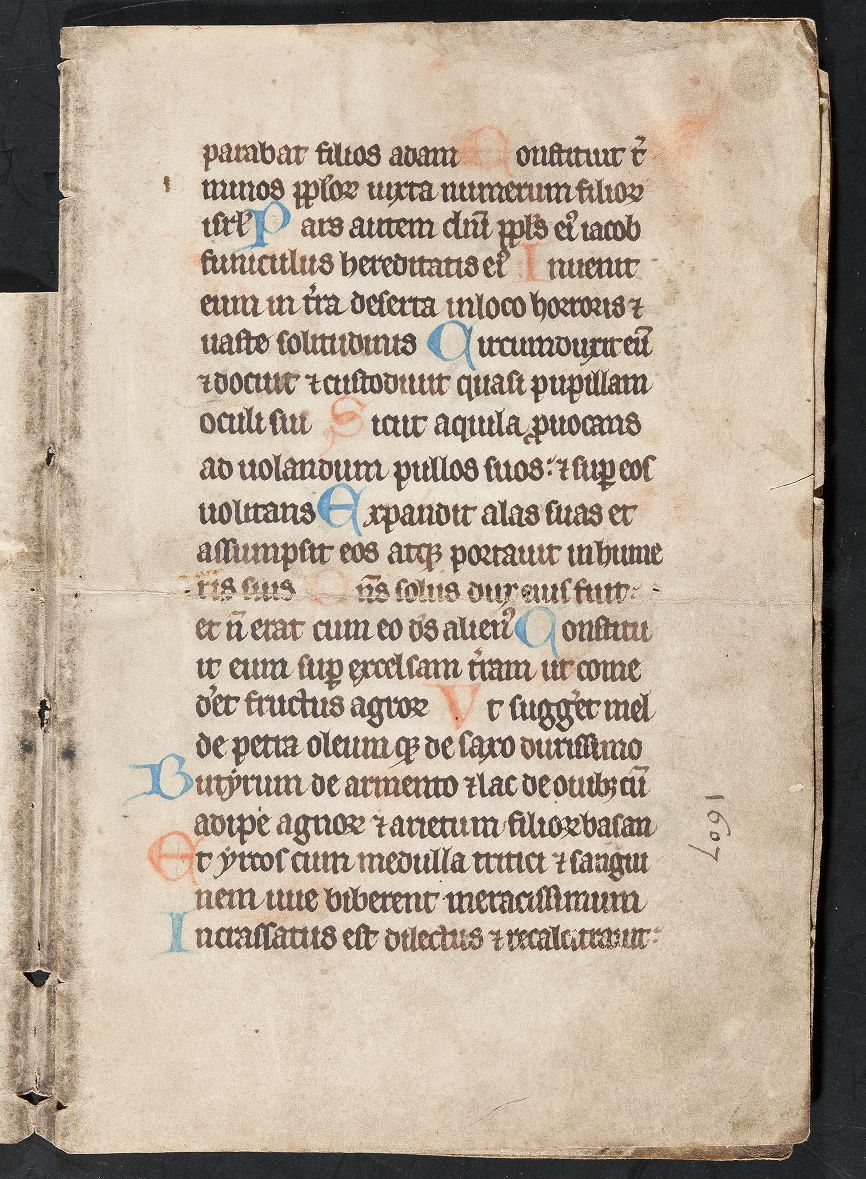 parabat filios adam Constituit t̄
minos ppłoꝝ iuxta numerum filioꝝ
isrł Pars autem dn̄i ppłs eiꝰ iacob
funiculus hereditatis eiꝰ Inuenit
eum in t̄ra deserta in loco horroris ⁊
uaste solitudinis Circumduxit eū
⁊ docuit ⁊ custodiuit quasi pupillam
oculi sui Sicut aquila ꝓuocans
ad uolandum pullos suos: ⁊ suꝑ eos
uolitans Expandit alas suas et
assumpsit eos atqꝫ portauit in hume
ris suis Dn̄s solus dux eius fuit:
et n̄ erat cum eo ds̄ alienꝰ Constitu
it eum suꝑ excelsam t̄ram ut come
d̓et fructus agroꝝ Vt sugg̓et mel
de petra oleum qꝫ de saxo durissimo
Butẏrum de armento ⁊ lac de ouibꝫ cū
adipe agnoꝝ ⁊ arietum filioꝝ basan
Et ẏrcos cum medulla tritici ⁊ sangui
nem uue biberent meracissimum
Incrassatus est dilectus ⁊ recalcitrauit:
1607